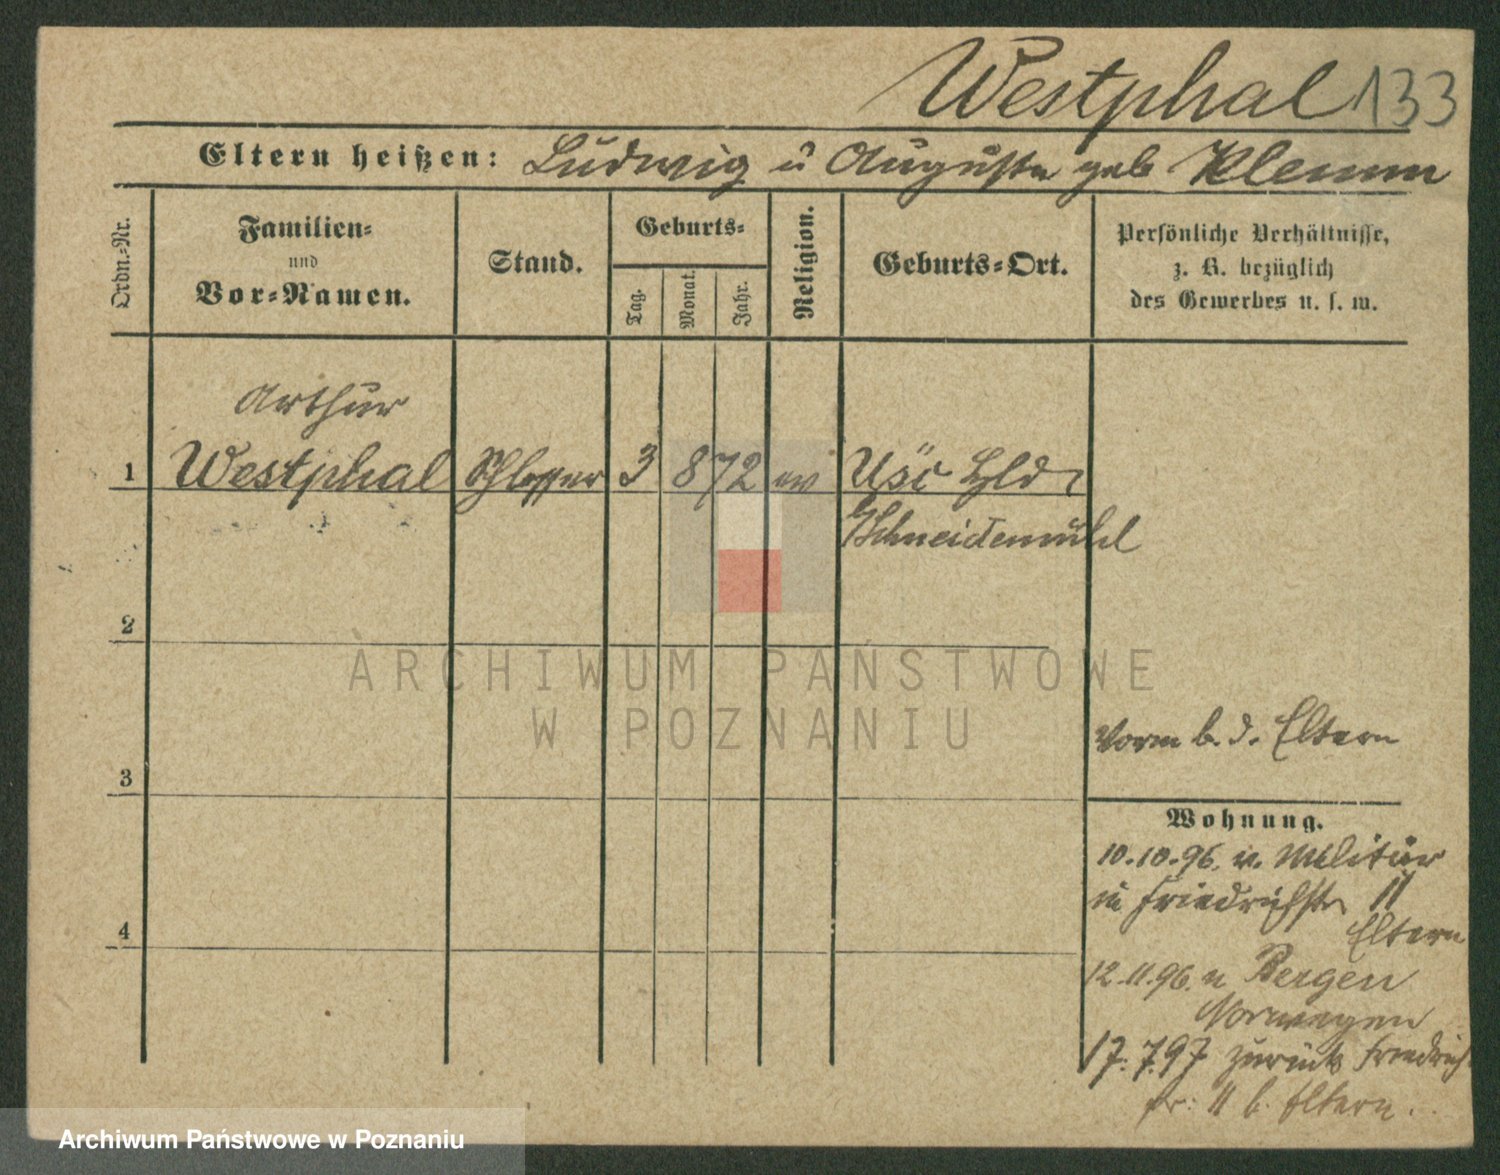 Westphal 133
Eltern heißen: Ludwig u Auguste geb Klemm
Ordn.-Nr.
Familien-
und
Vor-Namen.
Stand.
Geburts-
Tag.
Monat.
Jahr.
Religion.
Geburts-Ort.
Persönliche Verhältnisse,
z. B. bezüglich
des Gewerbes u. s. w.
Arthur
1 Westphal Schlosser 3 8 72 ev Usc Hld
Schneidemühl
2
3
4
Vorm b. d. Eltern
Wohnung.
10.10.96. v. Militär
in Friedrichstr 11
Eltern
12.11.96. n Bergen
Norwegen
17.7.97 zurück Friedrich
str: 11 b. Eltern.
ARCHIWUM PAŃSTWOWE
W POZNANIU
Archiwum Państwowe w Poznaniu